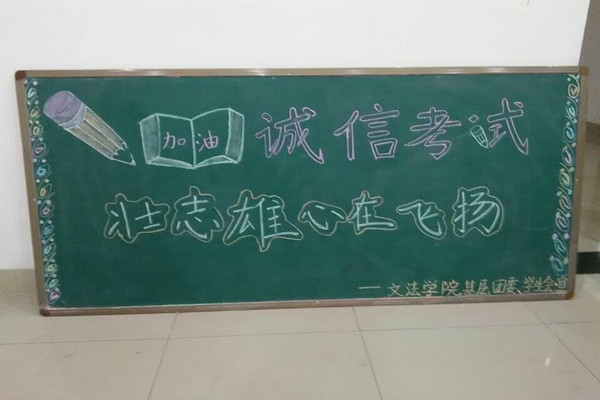 加油 诚信考试
壮志雄心在飞扬
——文法学院基层团委、学生会宣